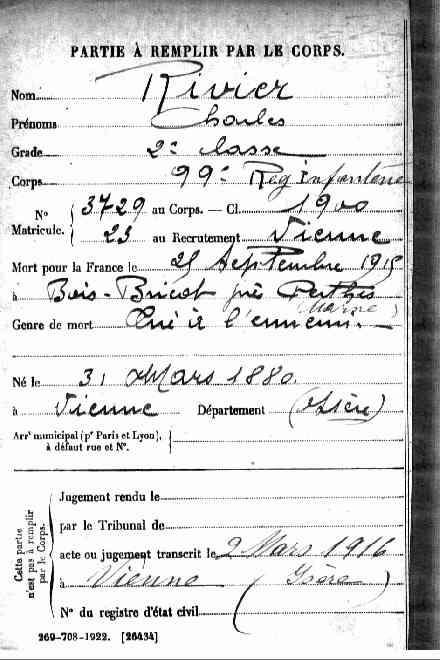 PARTIE À REMPLIR PAR LE CORPS.
Nom Rivier
Prénoms Charles
Grade 2e classe
Corps 99e Reg Infanterie
N° Matricule. 3729 au Corps. — Cl. 1900
23 au Recrutement Vienne
Mort pour la France le 25 Septembre 1915
à Bois-Bricot près Perthes
(Marne)
Genre de mort Tué à l'ennemi.
Né le 31 Mars 1880
à Vienne Département (Isère)
Arrt municipal (pr Paris et Lyon),
à défaut rue et N°.
Cette partie n'est pas à remplir par le Corps.
Jugement rendu le
par le Tribunal de
acte ou jugement transcrit le 2 Mars 1916
à Vienne (Isère)
N° du registre d'état civil
269-708-1922. [26434]